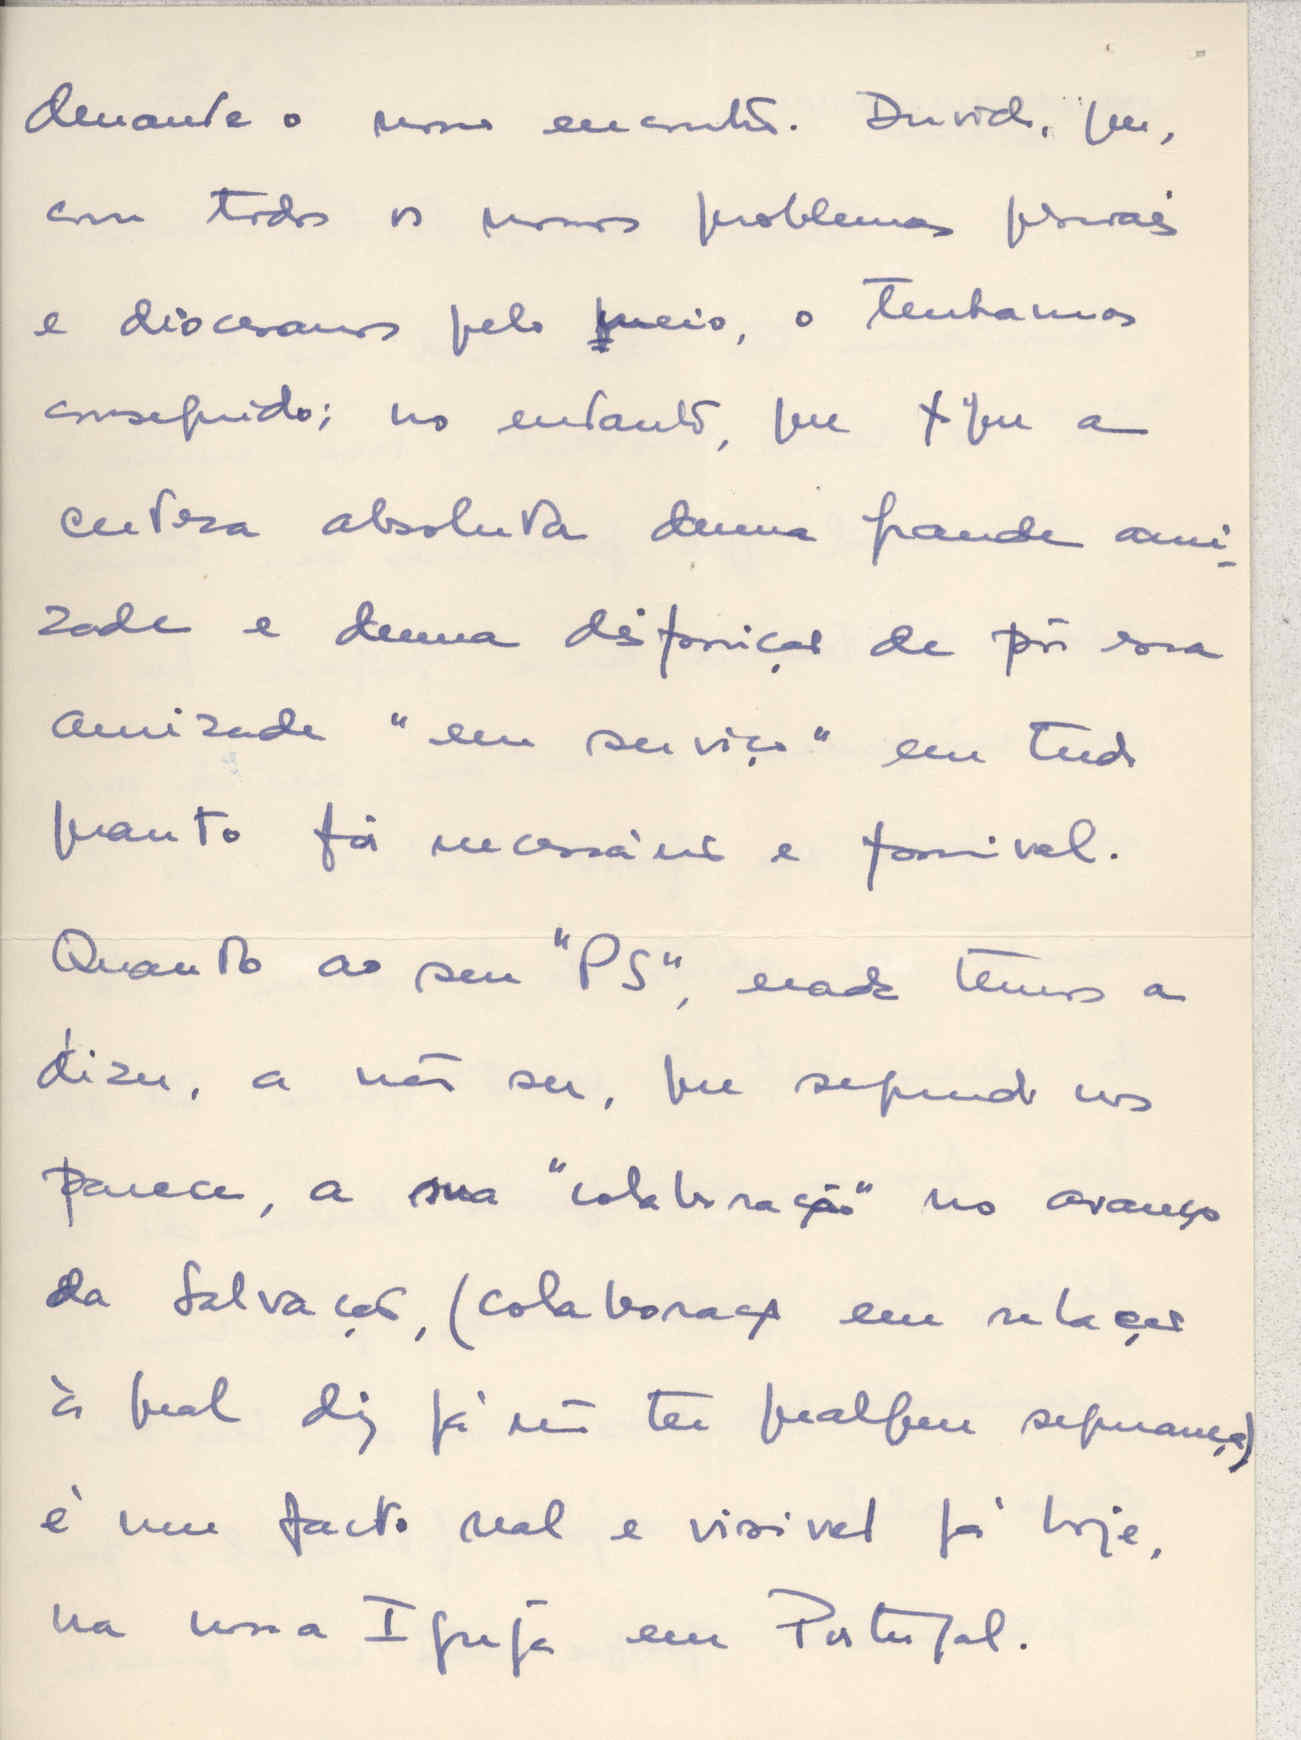 durante o nosso encontro. Duvido, que,
com todos os nossos problemas pessoais
e diocesanos pelo meio, o tenhamos
conseguido; no entanto, que fique a
certeza absoluta duma grande ami-
zade e duma disposição de pôr essa
amizade "em serviço" em tudo
quanto fôr necessário e possível.
Quanto ao seu "PS", nada temos a
dizer, a não ser, que segundo nos
parece, a sua "colaboração" no avanço
da Salvação, (colaboração em relação
à qual diz já não ter qualquer segurança)
é um facto real e visível já hoje,
na nossa Igreja em Portugal.